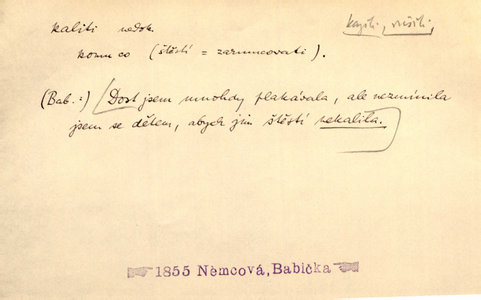 kaliti nedok.
komu co (štěstí = zarmucovati).
(Bab.:) Dost jsem mnohdy plakávala, ale nezmínila
jsem se dětem, abych jim štěstí nekalila.
1855 Němcová, Babička